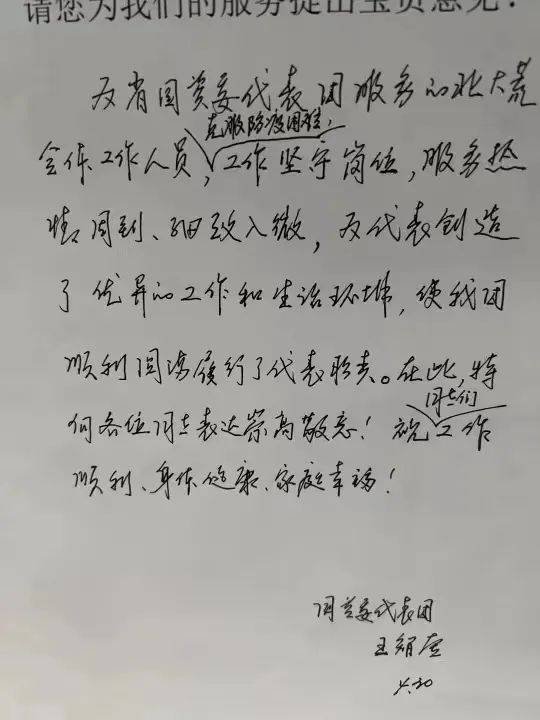 请您为我们的服务提出宝贵意见：
为省国资委代表团服务的北大荒
克服防疫困难，
全体工作人员，工作坚守岗位，服务热
情周到、细致入微，为代表创造
了优异的工作和生活环境，使我团
顺利圆满履行了代表职责。在此，特
同志们
向各位同志表达崇高敬意！祝工作
顺利、身体健康、家庭幸福！
国资委代表团
4.20